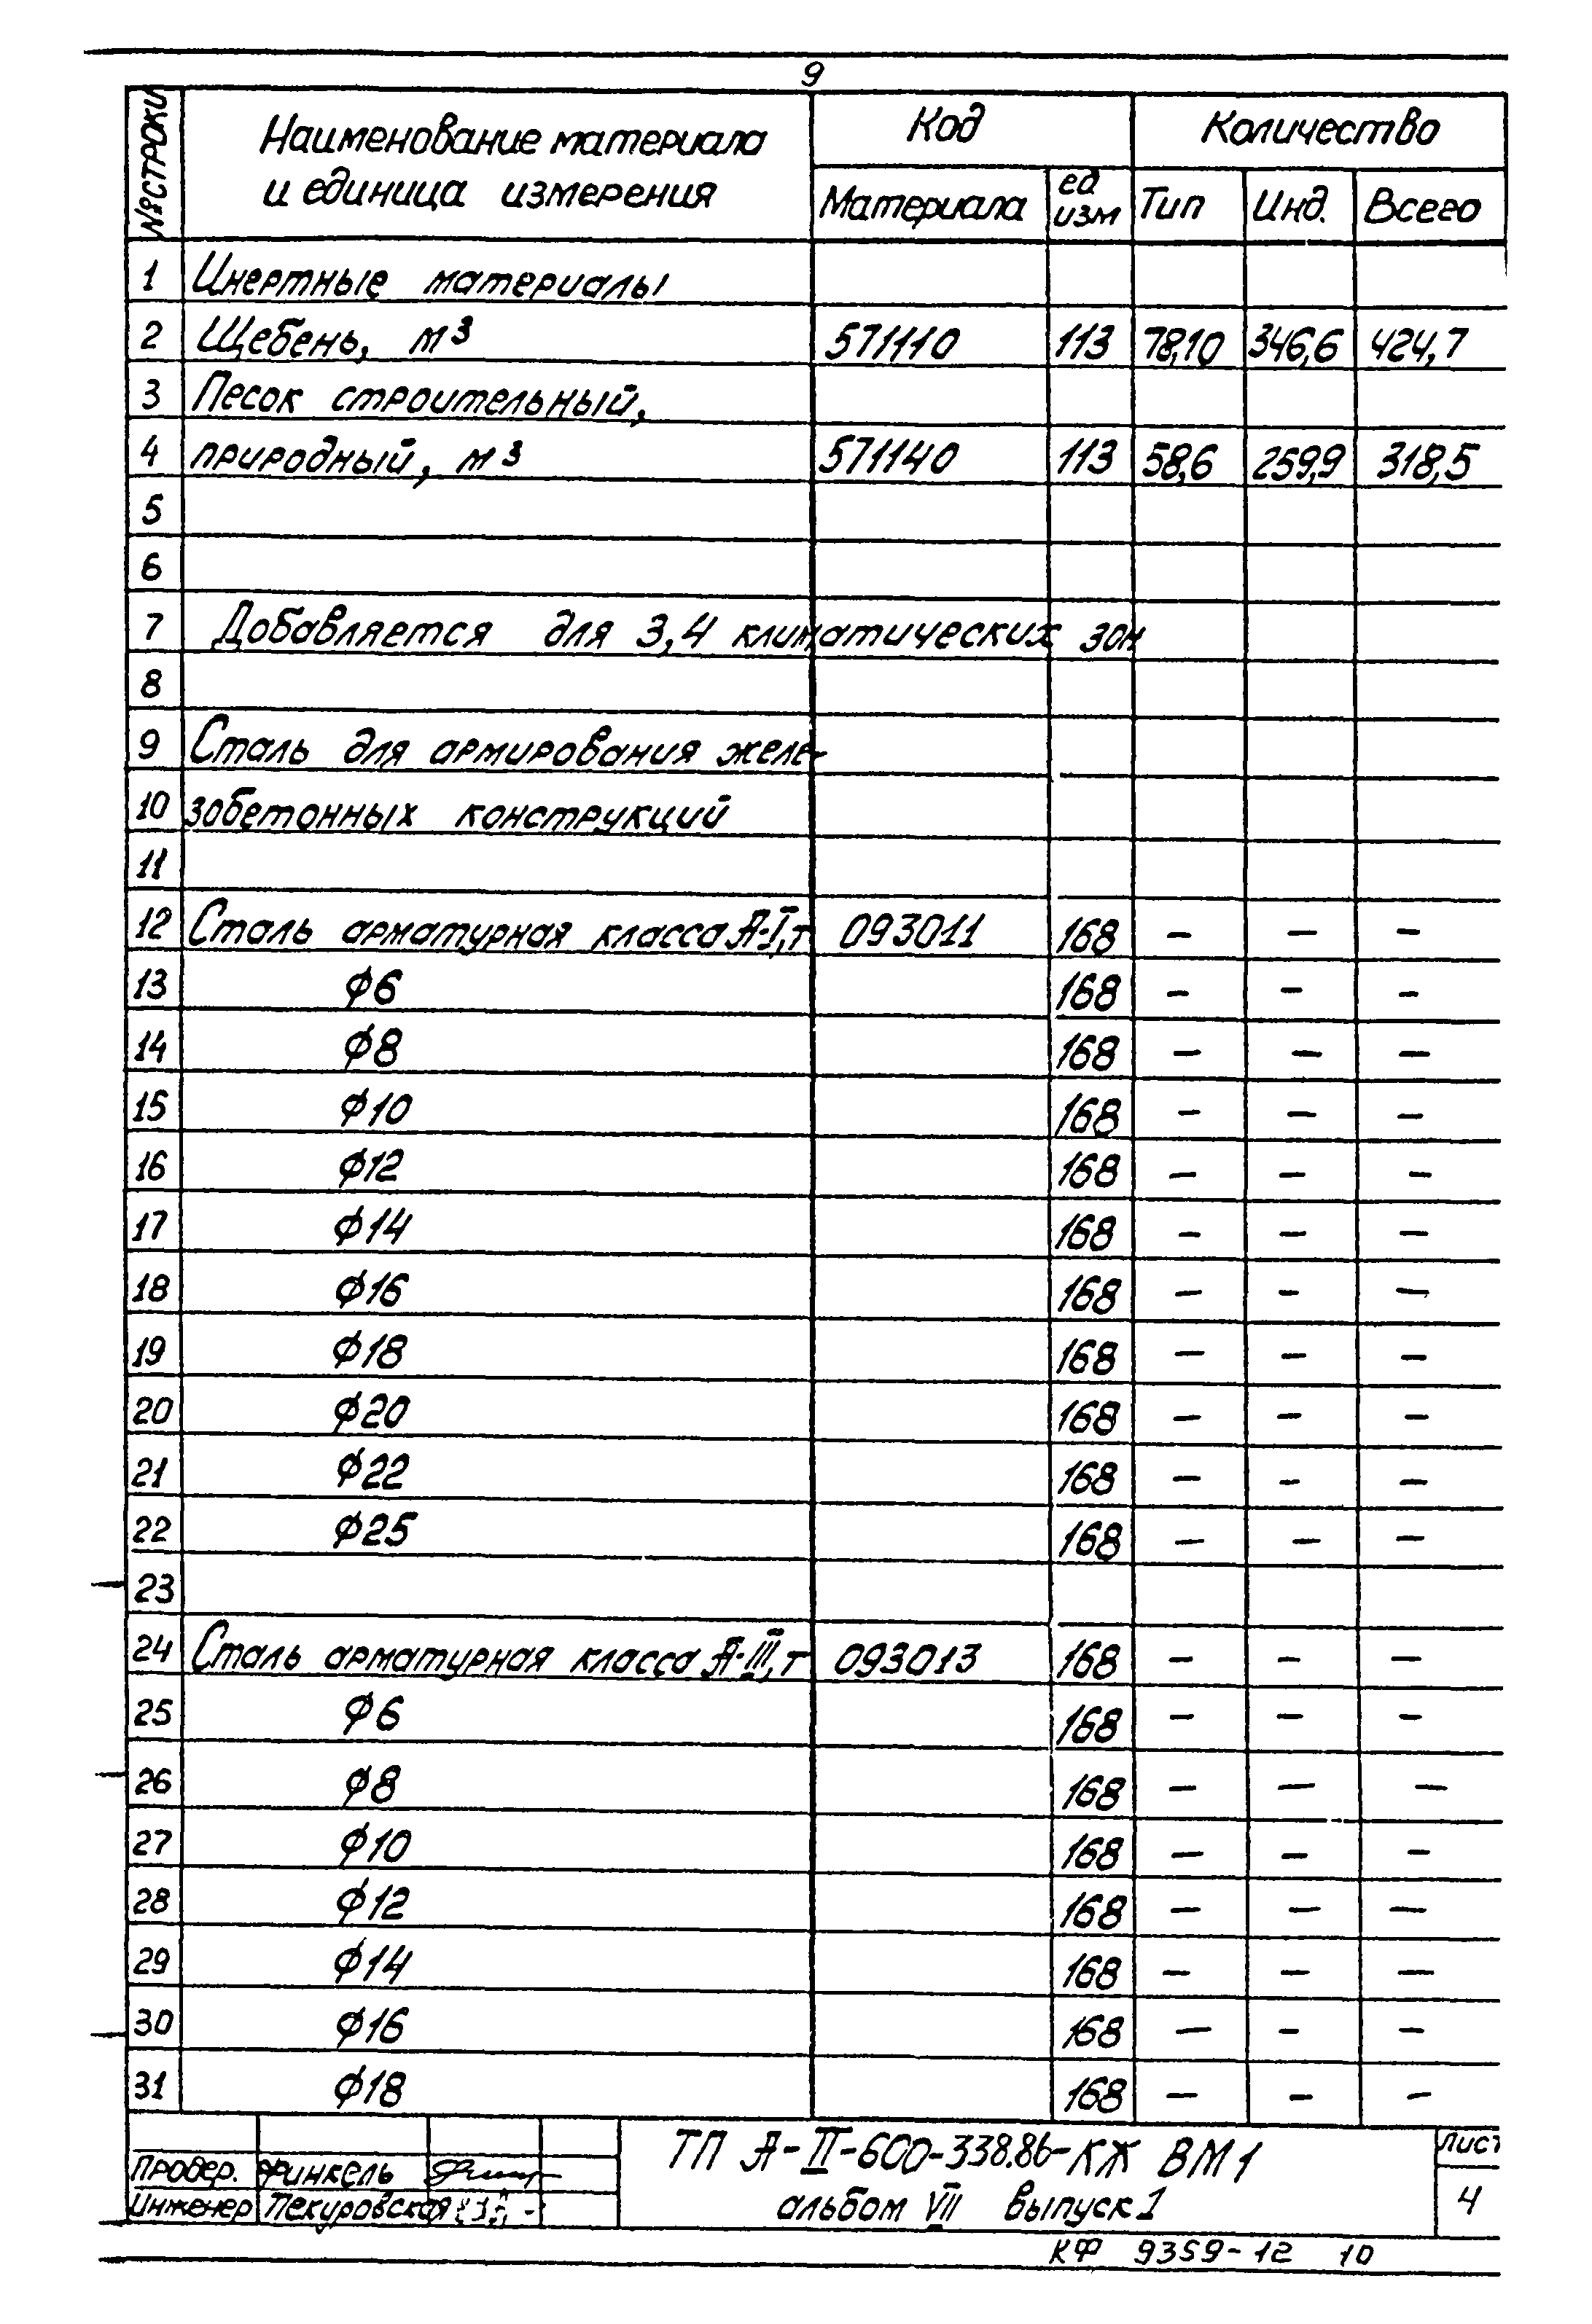 9
№ строки Наименование материала и единица измерения Код Количество
Материала ед изм Тип Инд. Всего
1 Инертные материалы
2 Щебень, м³ 571110 113 78,10 346,6 424,7
3 Песок строительный,
4 природный, м³ 571140 113 58,6 259,9 318,5
5
6
7 Добавляется для 3,4 климатических зон
8
9 Сталь для армирования желе-
10 зобетонных конструкций
11
12 Сталь арматурная класса А-I, т 093011 168 – – –
13 ϕ6 168 – – –
14 ϕ8 168 – – –
15 ϕ10 168 – – –
16 ϕ12 168 – – –
17 ϕ14 168 – – –
18 ϕ16 168 – – –
19 ϕ18 168 – – –
20 ϕ20 168 – – –
21 ϕ22 168 – – –
22 ϕ25 168 – – –
23
24 Сталь арматурная класса А-III, т 093013 168 – – –
25 ϕ6 168 – – –
26 ϕ8 168 – – –
27 ϕ10 168 – – –
28 ϕ12 168 – – –
29 ϕ14 168 – – –
30 ϕ16 168 – – –
31 ϕ18 168 – – –
ТП А-II-600-338.86-КЖ ВМ1 Лист
Провер. Финкель
Инженер Пекуровская альбом VII выпуск 1 4
КФ 9359-12 10